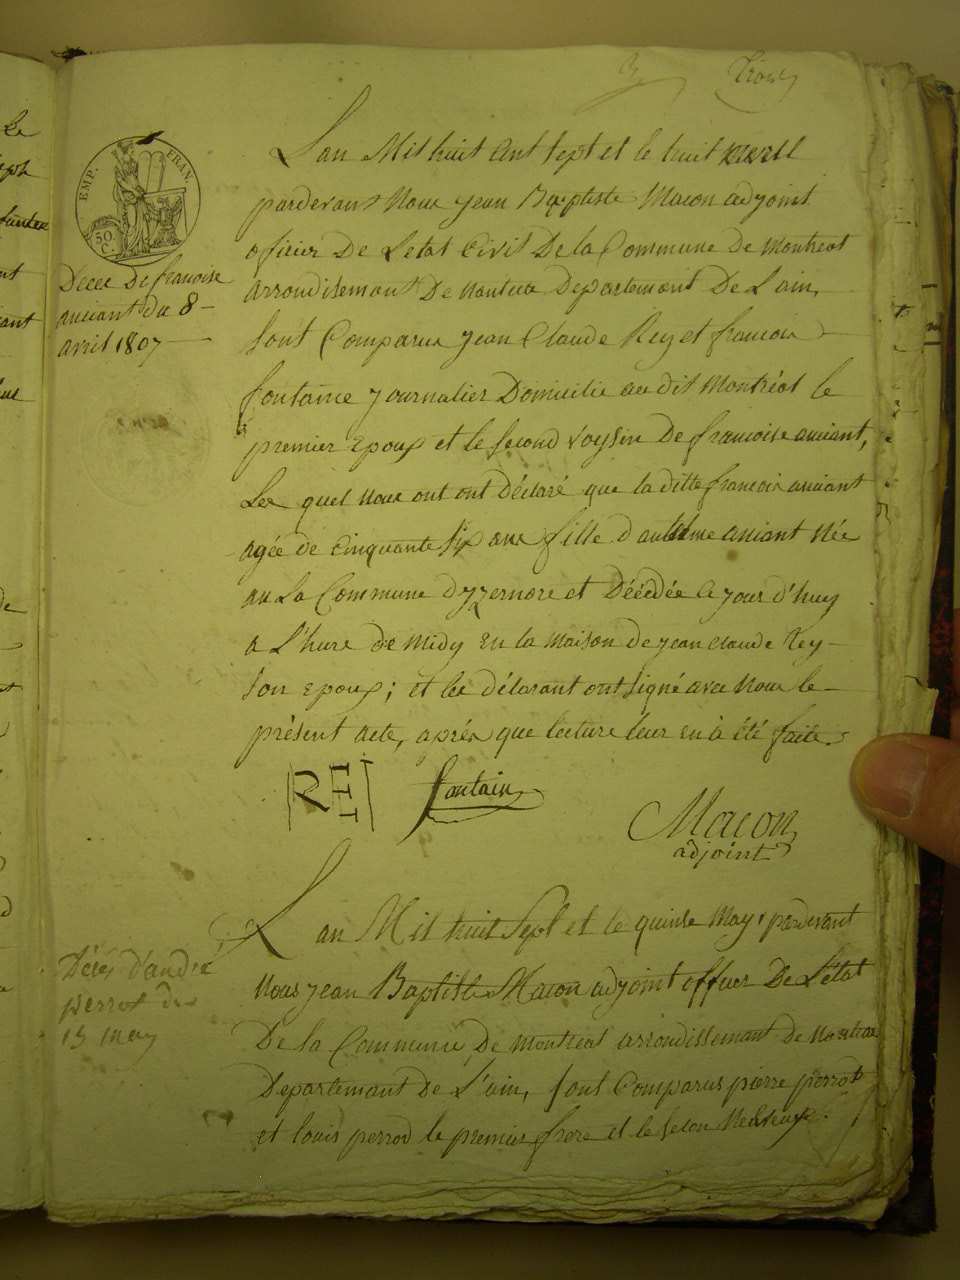 trois
EMP. FRAN.
50 C.
Deces De francoise
auuiant du 8
avril 1807
Lan Mil huit Cent sept et le huit avril
pardevant Nous jean Baptiste Macon adjoint
oficier De Letat Civil De la Commune de Montreal
arrondisemant De nantua Departemant De Lain,
sont Comparus jean Claude Rey et francois
fontaine journalier Domicilie au dit Montréal le
premier Epoux et le second voysin De francoise auuiant,
Les quel nous ont ont Déclaré que la ditte francois auuiant
agée de cinquante six ans fille d'anthelme auuiant Née
au La Commune d'yzernore et Décédée Ce jour d'huy
a L'hure de Midy En la maison de jean Claude Rey
son Epoux; et les déclarant ont signé avec nous le
présent acte, après que lecture leur en à été faite.
REI fontain
Macon
adjoint
Décès d'andré
perrot du
15 may
Lan Mil huit Sept et le quinse May, pardevant
Nous jean Baptiste Macon adjoint officier De L'état
De la Commune De Montreal arrondissemant de Nantua
Departemant de L'ain, sont Comparus pierre perrot
et louis perrod le premier frere et le secon Neveux